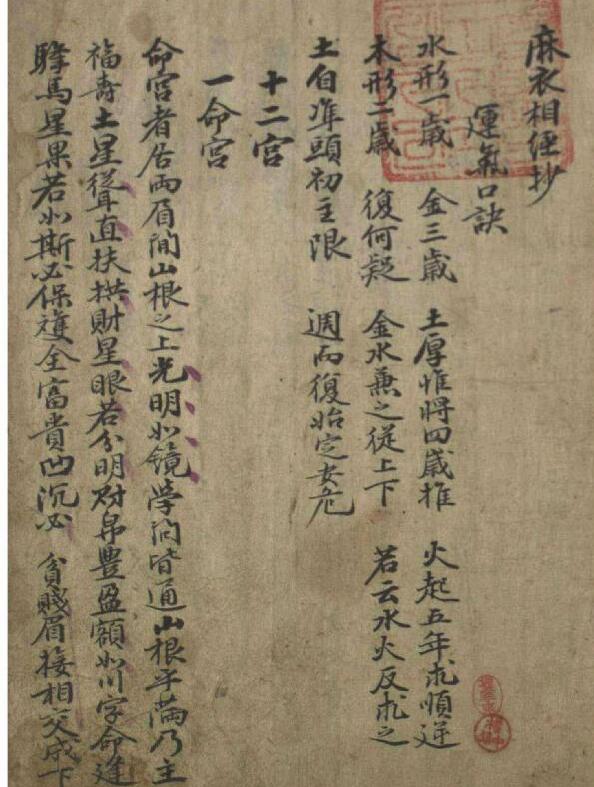 麻衣相經抄
運氣口訣
水形一歲 金三歲 土厚惟將四歲推 火起五年求順逆
木形二歲 復何疑 金水兼之從上下 若云水火反求之
土自準頭初主限 週而復始定安危
十二宮
一命宮
命宮者居兩眉間山根之上光明如鏡學問皆通山根平滿乃主
福壽土星聳直扶拱財星眼若分明財帛豐盈額如川字命逢
驛馬星果若如斯必保雙全富貴凹沉必 貧賤眉接相交成下